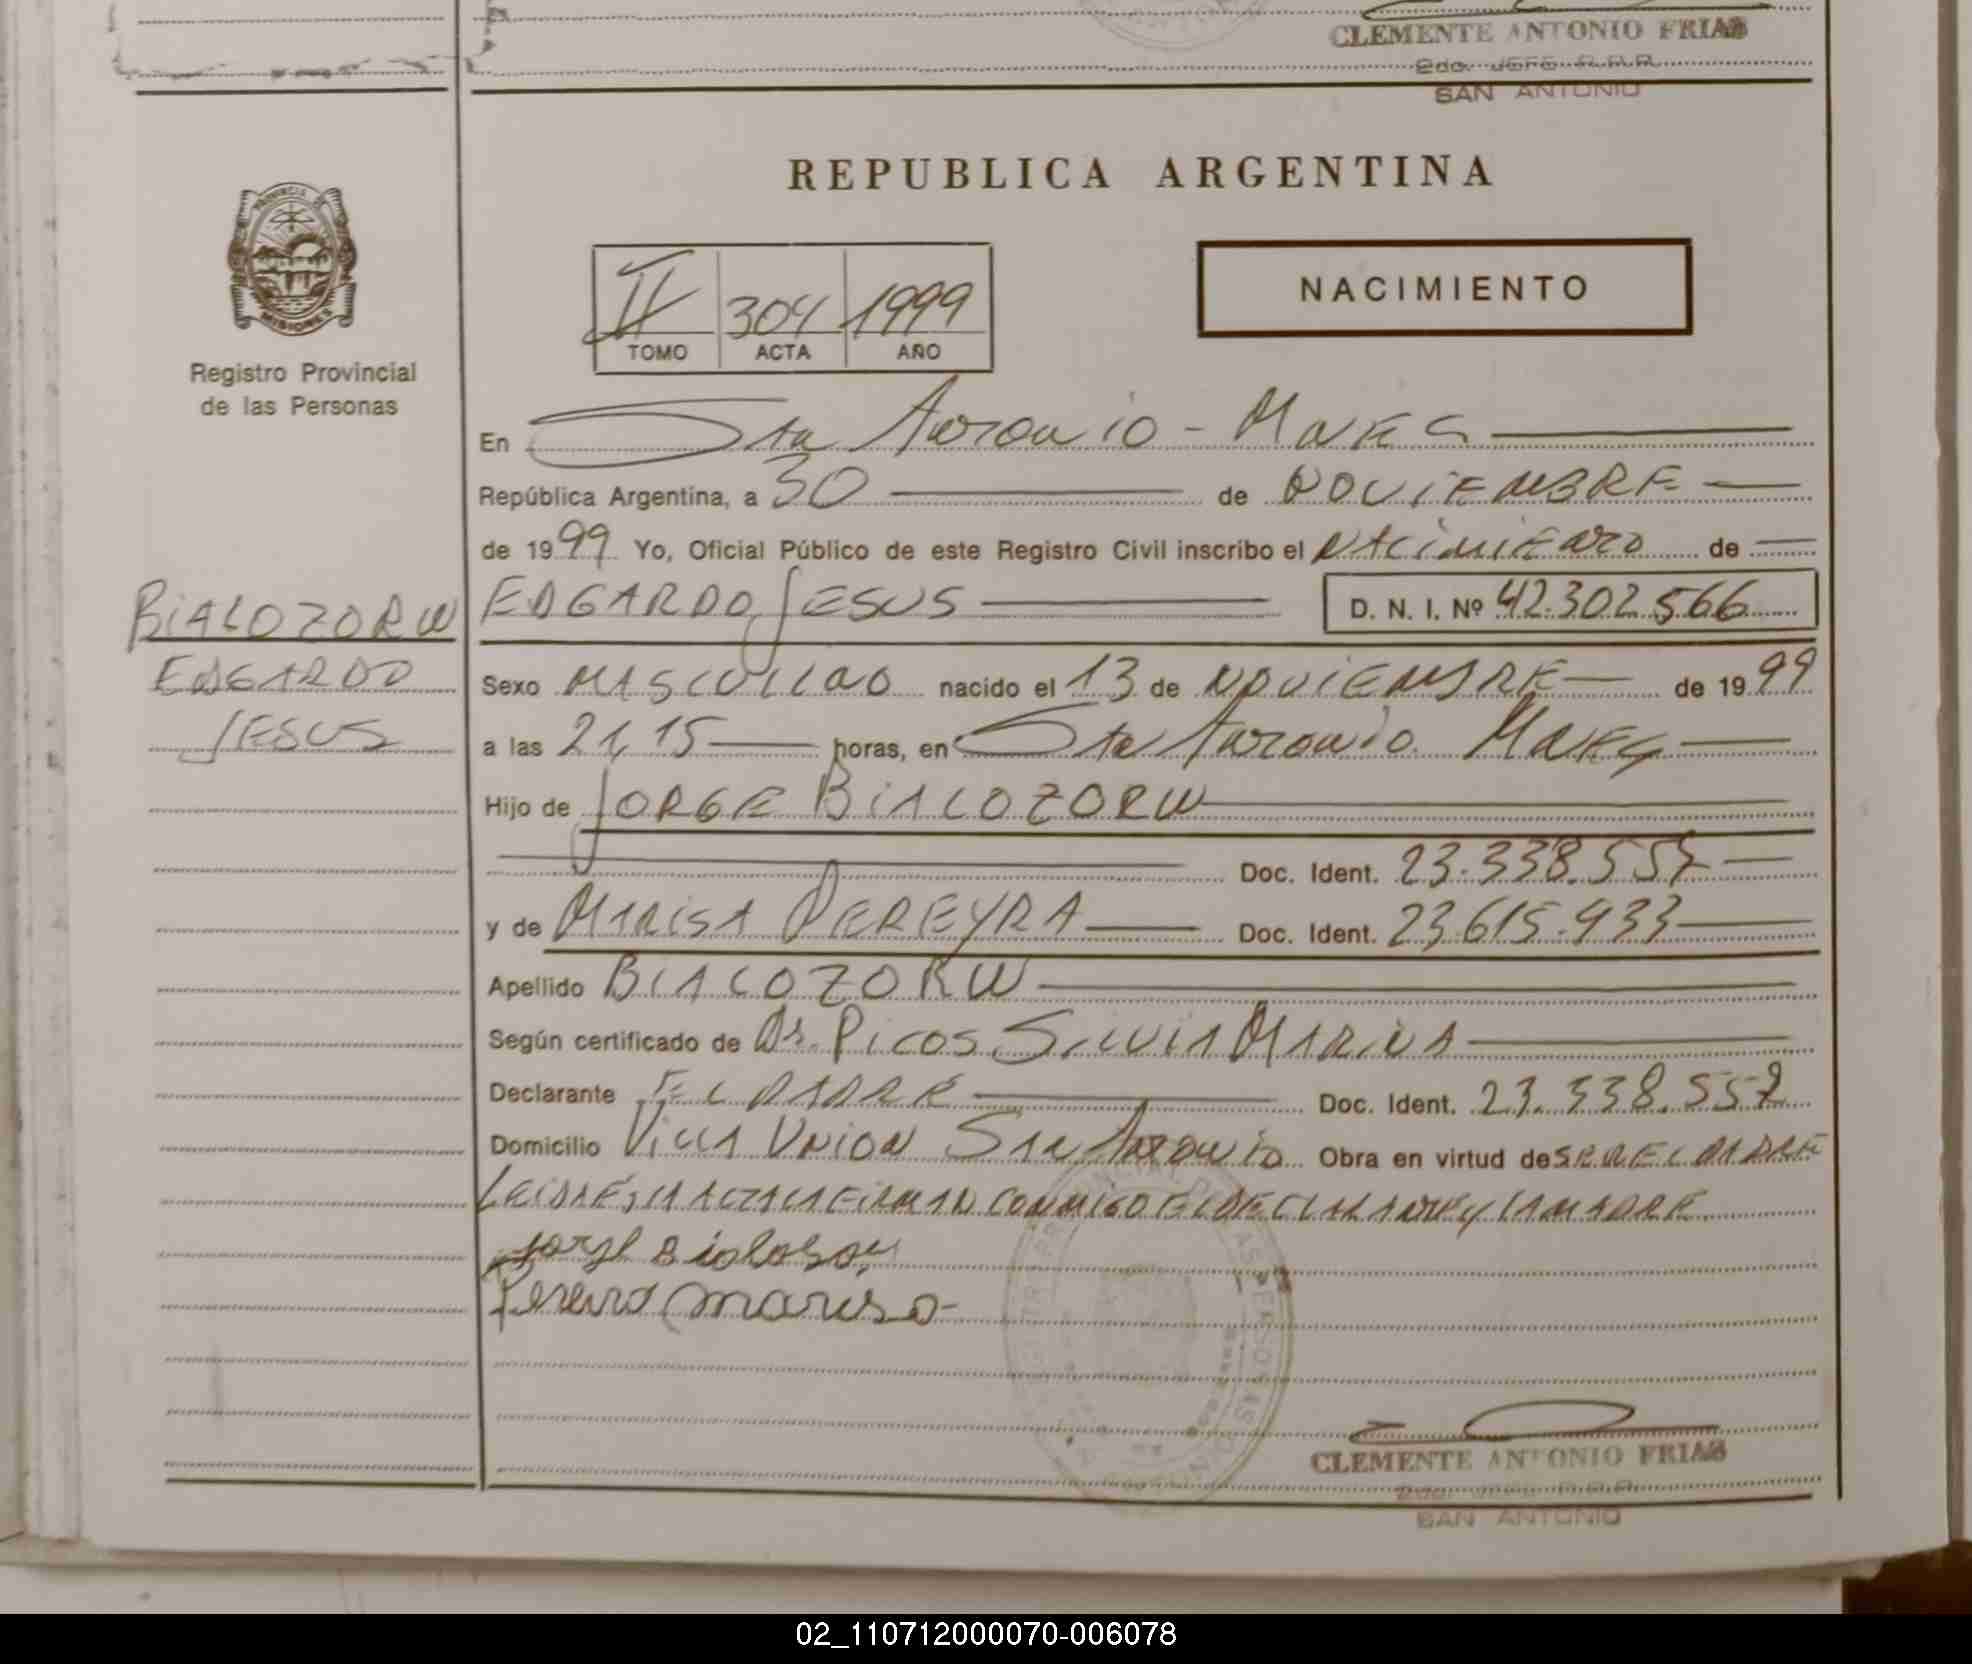 CLEMENTE ANTONIO FRIAS
2do. JEFE R.P.P.
SAN ANTONIO
REPUBLICA ARGENTINA
PROVINCIA DE
MISIONES
Registro Provincial
de las Personas
II 304 1999
TOMO ACTA AÑO
NACIMIENTO
En San Antonio - Mnes
República Argentina, a 30 de NOVIEMBRE
de 1999 Yo, Oficial Público de este Registro Civil inscribo el NACIMIENTO de
BIALOZORW
EDGARDO
JESUS
EDGARDO JESUS D. N. I. Nº 42.302.566
Sexo MASCULINO nacido el 13 de NOVIEMBRE de 1999
a las 21,15 horas, en San Antonio Mnes
Hijo de JORGE BIALOZORW
Doc. Ident. 23.338.557
y de MARISA PEREYRA Doc. Ident. 23.615.933
Apellido BIALOZORW
Según certificado de Dr. PICOS SILVIA MARINA
Declarante EL PADRE Doc. Ident. 23.338.557
Domicilio VILLA UNION SAN ANTONIO Obra en virtud de SER EL PADRE
LEIDA ES LA ACTA LA FIRMAN CONMIGO EL DECLARANTE Y LA MADRE
Pereyra Marisa
CLEMENTE ANTONIO FRIAS
2do. JEFE R.P.P.
SAN ANTONIO
02_110712000070-006078